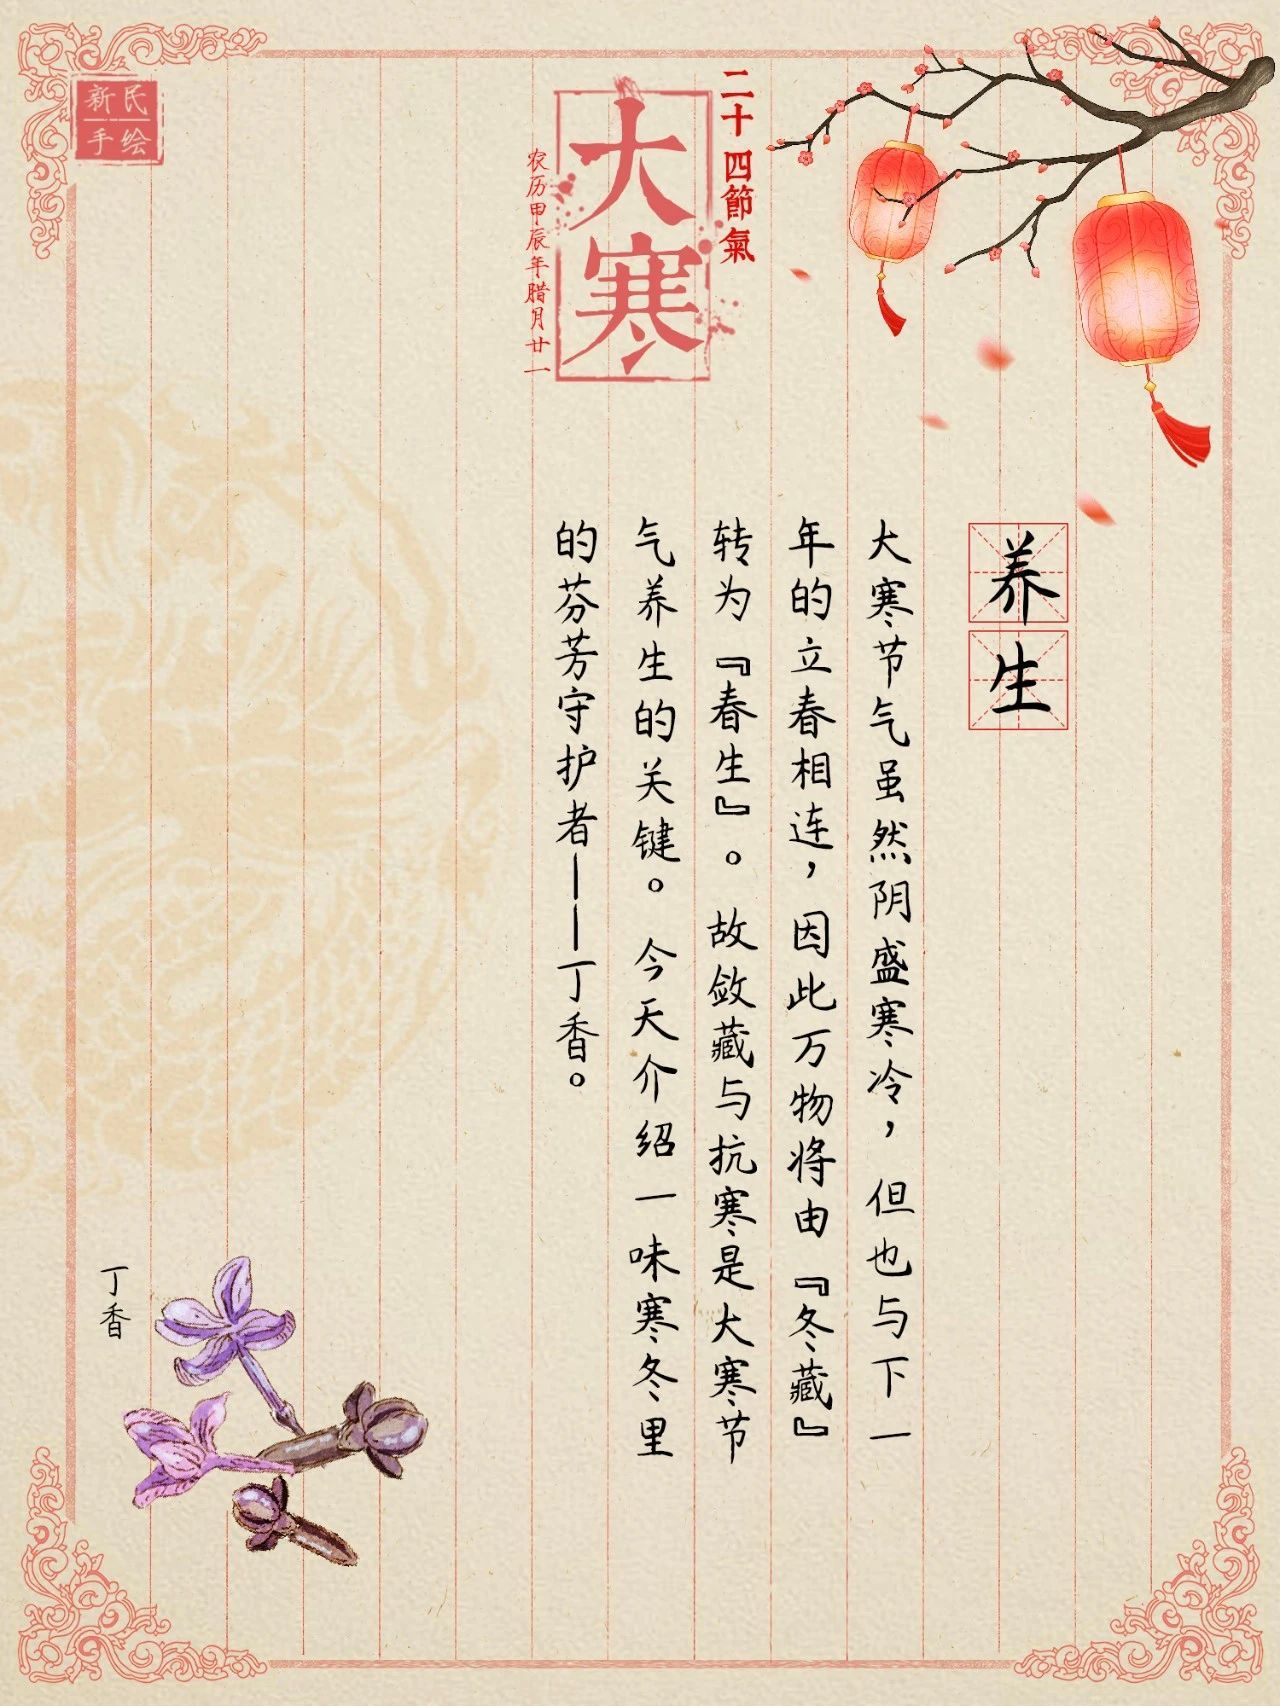 新民
手绘
二十四節氣
大寒
农历甲辰年腊月廿一
养生
大寒节气虽然阴盛寒冷，但也与下一
年的立春相连，因此万物将由『冬藏』
转为『春生』。故敛藏与抗寒是大寒节
气养生的关键。今天介绍一味寒冬里
的芬芳守护者——丁香。
丁香